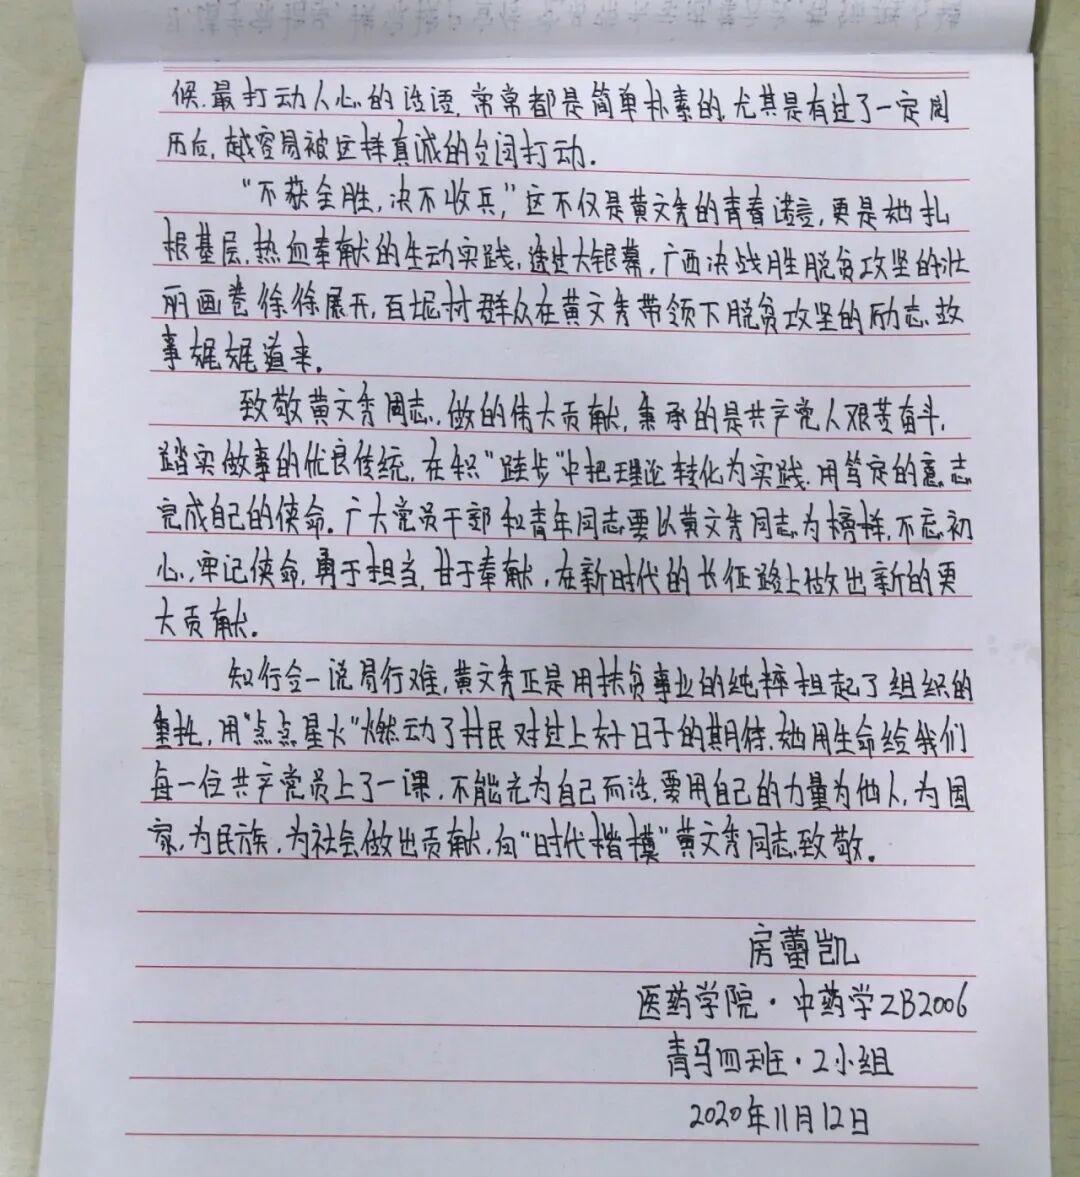 候,最打动人心的话语,常常都是简单朴素的,尤其是有过了一定阅
历后,越容易被这样真诚的台词打动.
“不获全胜,决不收兵,”这不仅是黄文秀的青春诺言,更是她扎
根基层,热血奉献的生动实践,透过大银幕,广西决战决胜脱贫攻坚的壮
丽画卷徐徐展开,百坭村群众在黄文秀带领下脱贫攻坚的励志故
事娓娓道来.
致敬黄文秀同志,做的伟大贡献,秉承的是共产党人艰苦奋斗,
踏实做事的优良传统,在积“跬步”中把理论转化为实践,用笃定的意志
完成自己的使命.广大党员干部和青年同志要以黄文秀同志为榜样,不忘初
心,牢记使命,勇于担当,甘于奉献,在新时代的长征路上做出新的更
大贡献.
知行合一说易行难,黄文秀正是用扶贫事业的纯粹担起了组织的
重托,用“点点星火”燃动了村民对过上好日子的期待,她用生命给我们
每一位共产党员上了一课,不能光为自己而活,要用自己的力量为他人,为国
家,为民族,为社会做出贡献,向“时代楷模”黄文秀同志致敬.
房蕾凯
医药学院·中药学ZB2006
青马四班·2小组
2020年11月12日